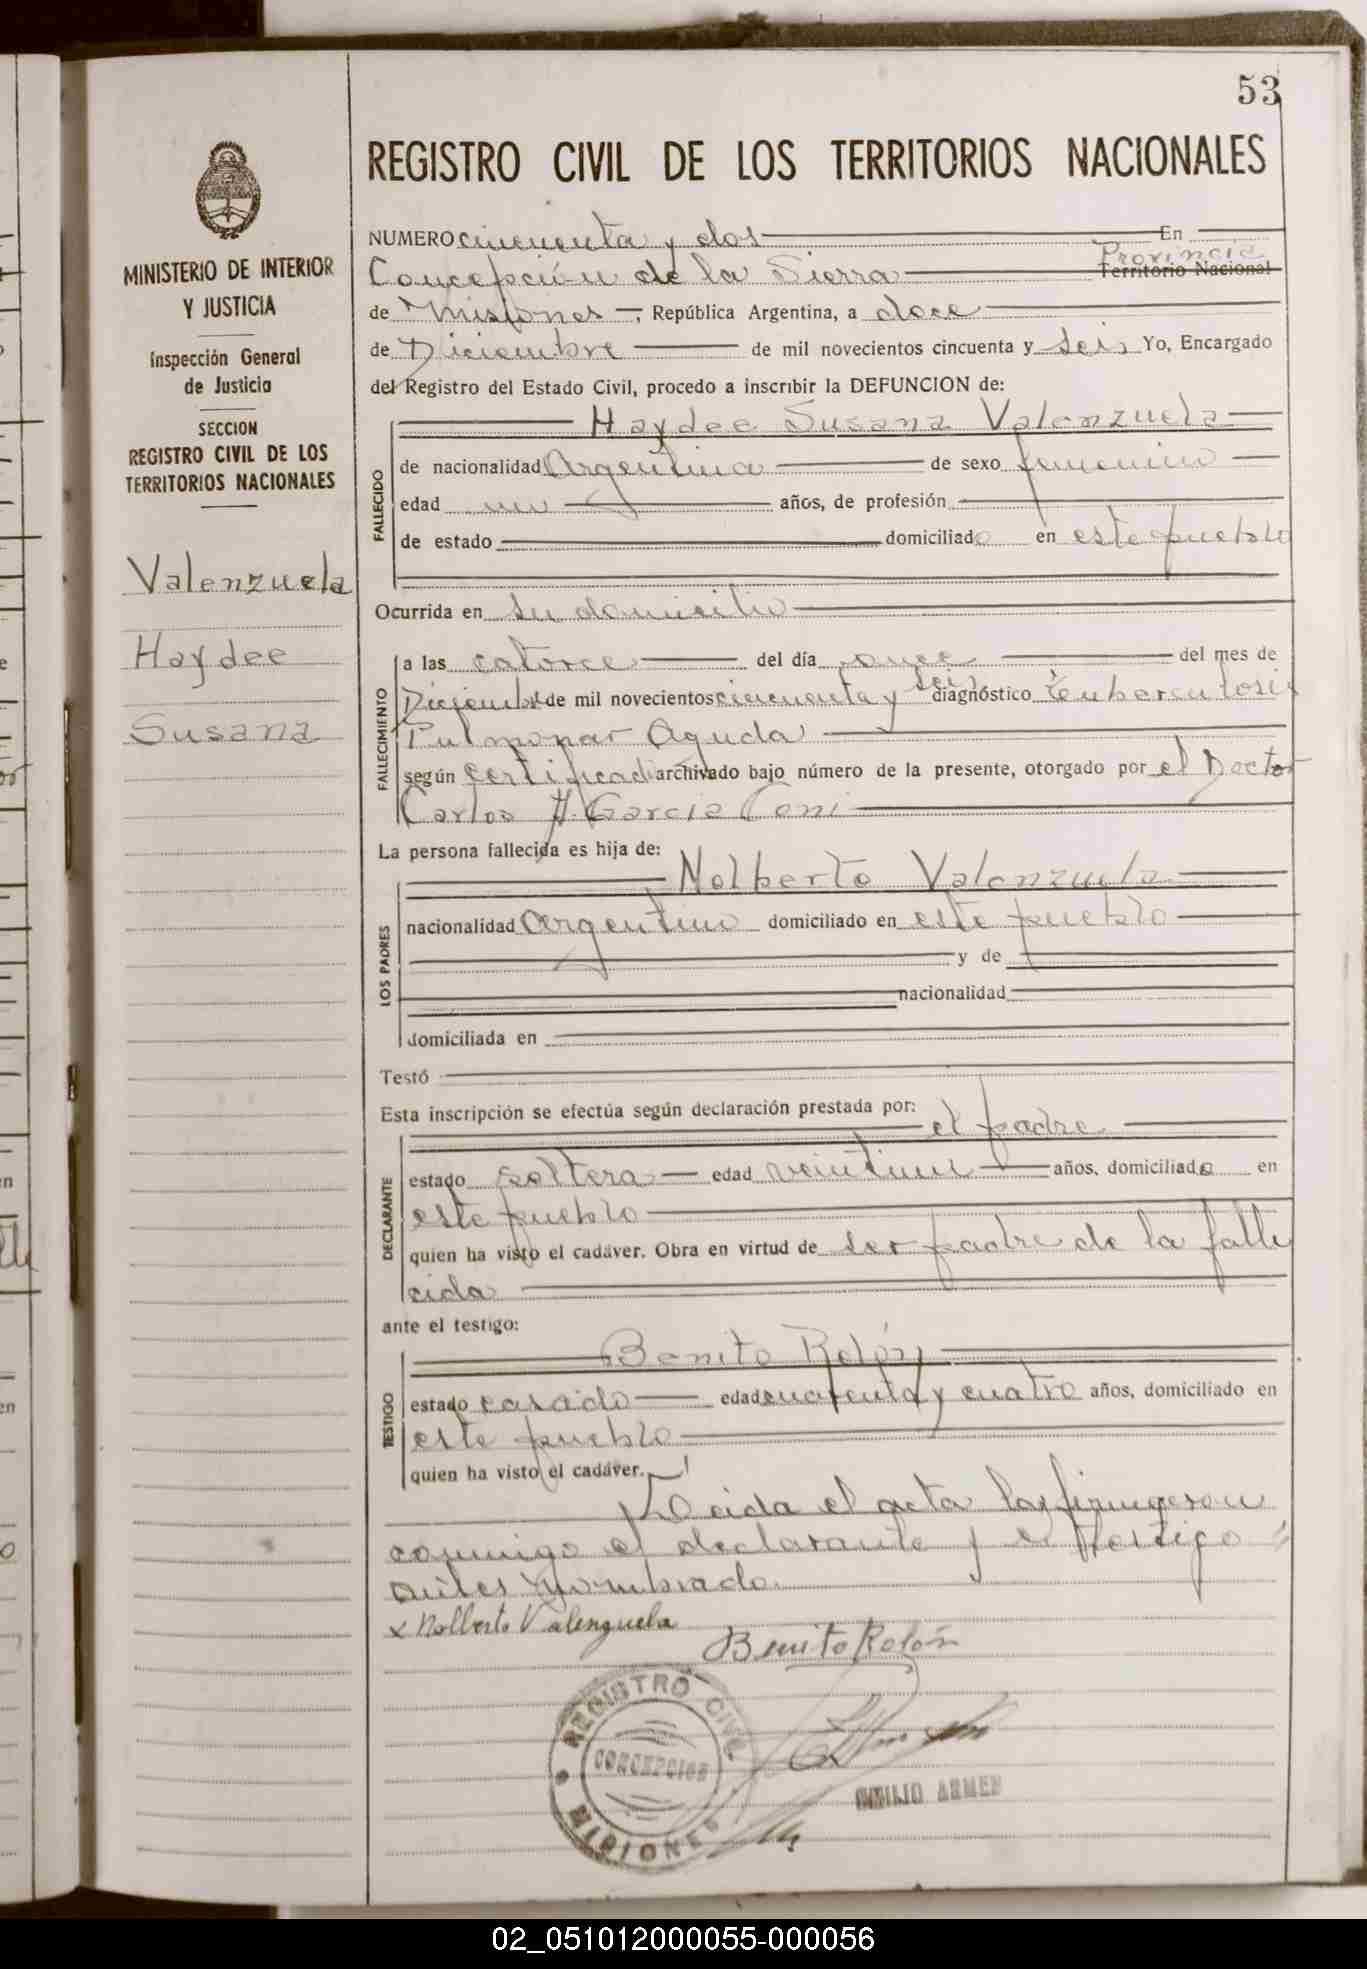 53
REGISTRO CIVIL DE LOS TERRITORIOS NACIONALES
MINISTERIO DE INTERIOR
Y JUSTICIA
Inspección General
de Justicia
SECCION
REGISTRO CIVIL DE LOS
TERRITORIOS NACIONALES
Valenzuela
Haydee
Susana
NUMERO cincuenta y dos En
Concepción de la Sierra Provincia Territorio Nacional
de Misiones, República Argentina, a doce
de Diciembre de mil novecientos cincuenta y seis Yo, Encargado
del Registro del Estado Civil, procedo a inscribir la DEFUNCION de:
FALLECIDO
Haydee Susana Valenzuela
de nacionalidad Argentina de sexo femenino
edad un años, de profesión
de estado domiciliado en este pueblo
Ocurrida en su domicilio
FALLECIMIENTO
a las catorce del día once del mes de
Diciembre de mil novecientos cincuenta y seis diagnóstico Tuberculosis
Pulmonar Aguda
según certificado archivado bajo número de la presente, otorgado por el Doctor
Carlos H. Garcia Coni
La persona fallecida es hija de:
LOS PADRES
Nolberto Valenzuela
nacionalidad argentino domiciliado en este pueblo
y de
nacionalidad
domiciliada en
Testó
Esta inscripción se efectúa según declaración prestada por:
DECLARANTE
el padre
estado soltero edad años, domiciliado en
este pueblo
quien ha visto el cadáver. Obra en virtud de ser padre de la falle
cida
ante el testigo:
TESTIGO
Benito Rolón
estado casado edad cuarenta y cuatro años, domiciliado en
este pueblo
quien ha visto el cadáver.
Leida el acta la firmaron
conmigo el declarante y el testigo
antes nombrado.
x Nolberto Valenzuela
Benito Rolón
REGISTRO CIVIL
CONCEPCION
MISIONES
EMILIO ARMEN
02_051012000055-000056